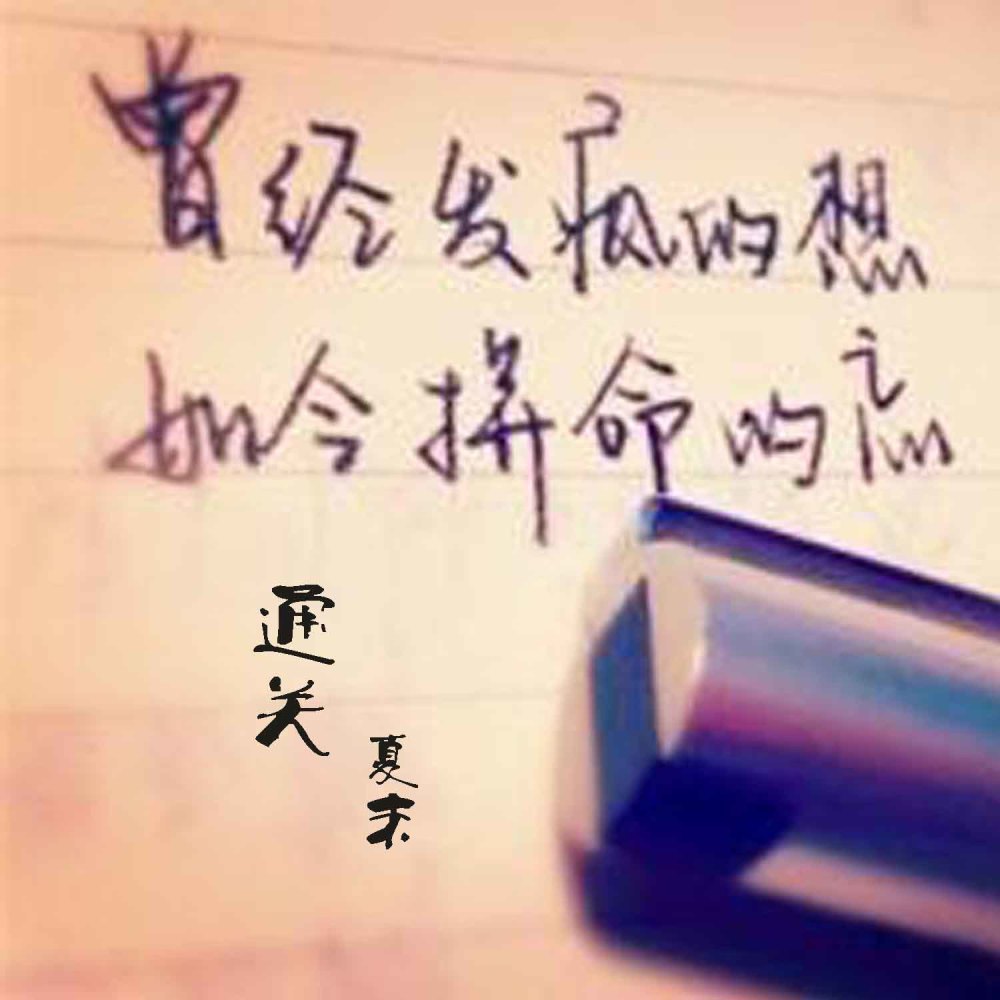 曾经发疯的想
如今拼命的忘
通关
夏末